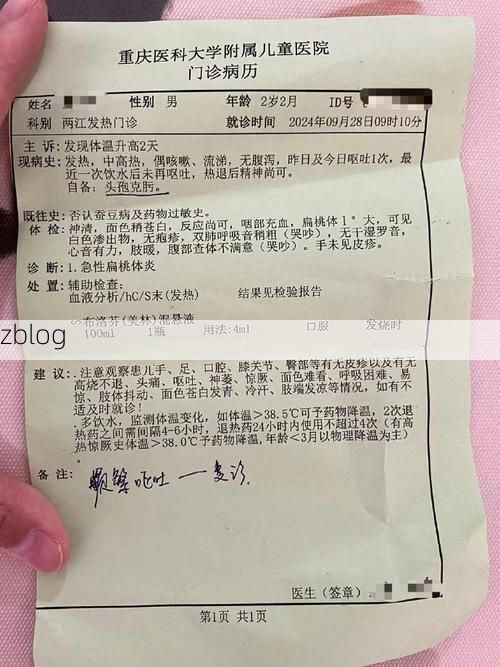 重庆医科大学附属儿童医院
门诊病历
姓名 性别 男 年龄 2岁2月 ID号
科别 两江发热门诊 就诊时间 2024年09月28日09时10分
主 诉:发现体温升高2天
现病史:发热,中高热,偶咳嗽、流涕,无腹泻,昨日及今日呕吐1次,最
近一次饮水后未再呕吐,热退后精神尚可。
自备:头孢克肟。
既往史:否认蚕豆病及药物过敏史。
体 检:神清,面色稍苍白,反应尚可,咽部充血,扁桃体1°大,可见
白色渗出物,无疱疹,双肺呼吸音稍粗(哭吵),无干湿罗音,
心音有力,肢暖,腹部查体不满意(哭吵)。手未见皮疹。
诊 断:1.急性扁桃体炎
处 置:辅助检查:
血液分析/hC/S末(发热) 结果见检验报告
布洛芬(美林)混悬液
100ml 1瓶 用法:4ml 口服 发烧时
zblog
建 议:.注意观察患儿手、足、口腔、膝关节、臀部等有无皮疹以及有无
高烧不退、头痛、呕吐、神萎、惊厥、面色难看、呼吸困难、易
惊、肢体抖动、面色苍白发青、冷汗、肢端发凉等情况,如有不
适及时就诊!
多饮水,监测体温变化,如体温>38.5℃可予药物降温,2次退
热药之间需间隔4-6小时,退热药24小时内使用不超过4次(有高
热惊厥史体温>38.0℃予药物降温,年龄<3月以物理降温为主)
。
备 注:
频繁呕吐一复诊
医生(签章):
第1页 共1页